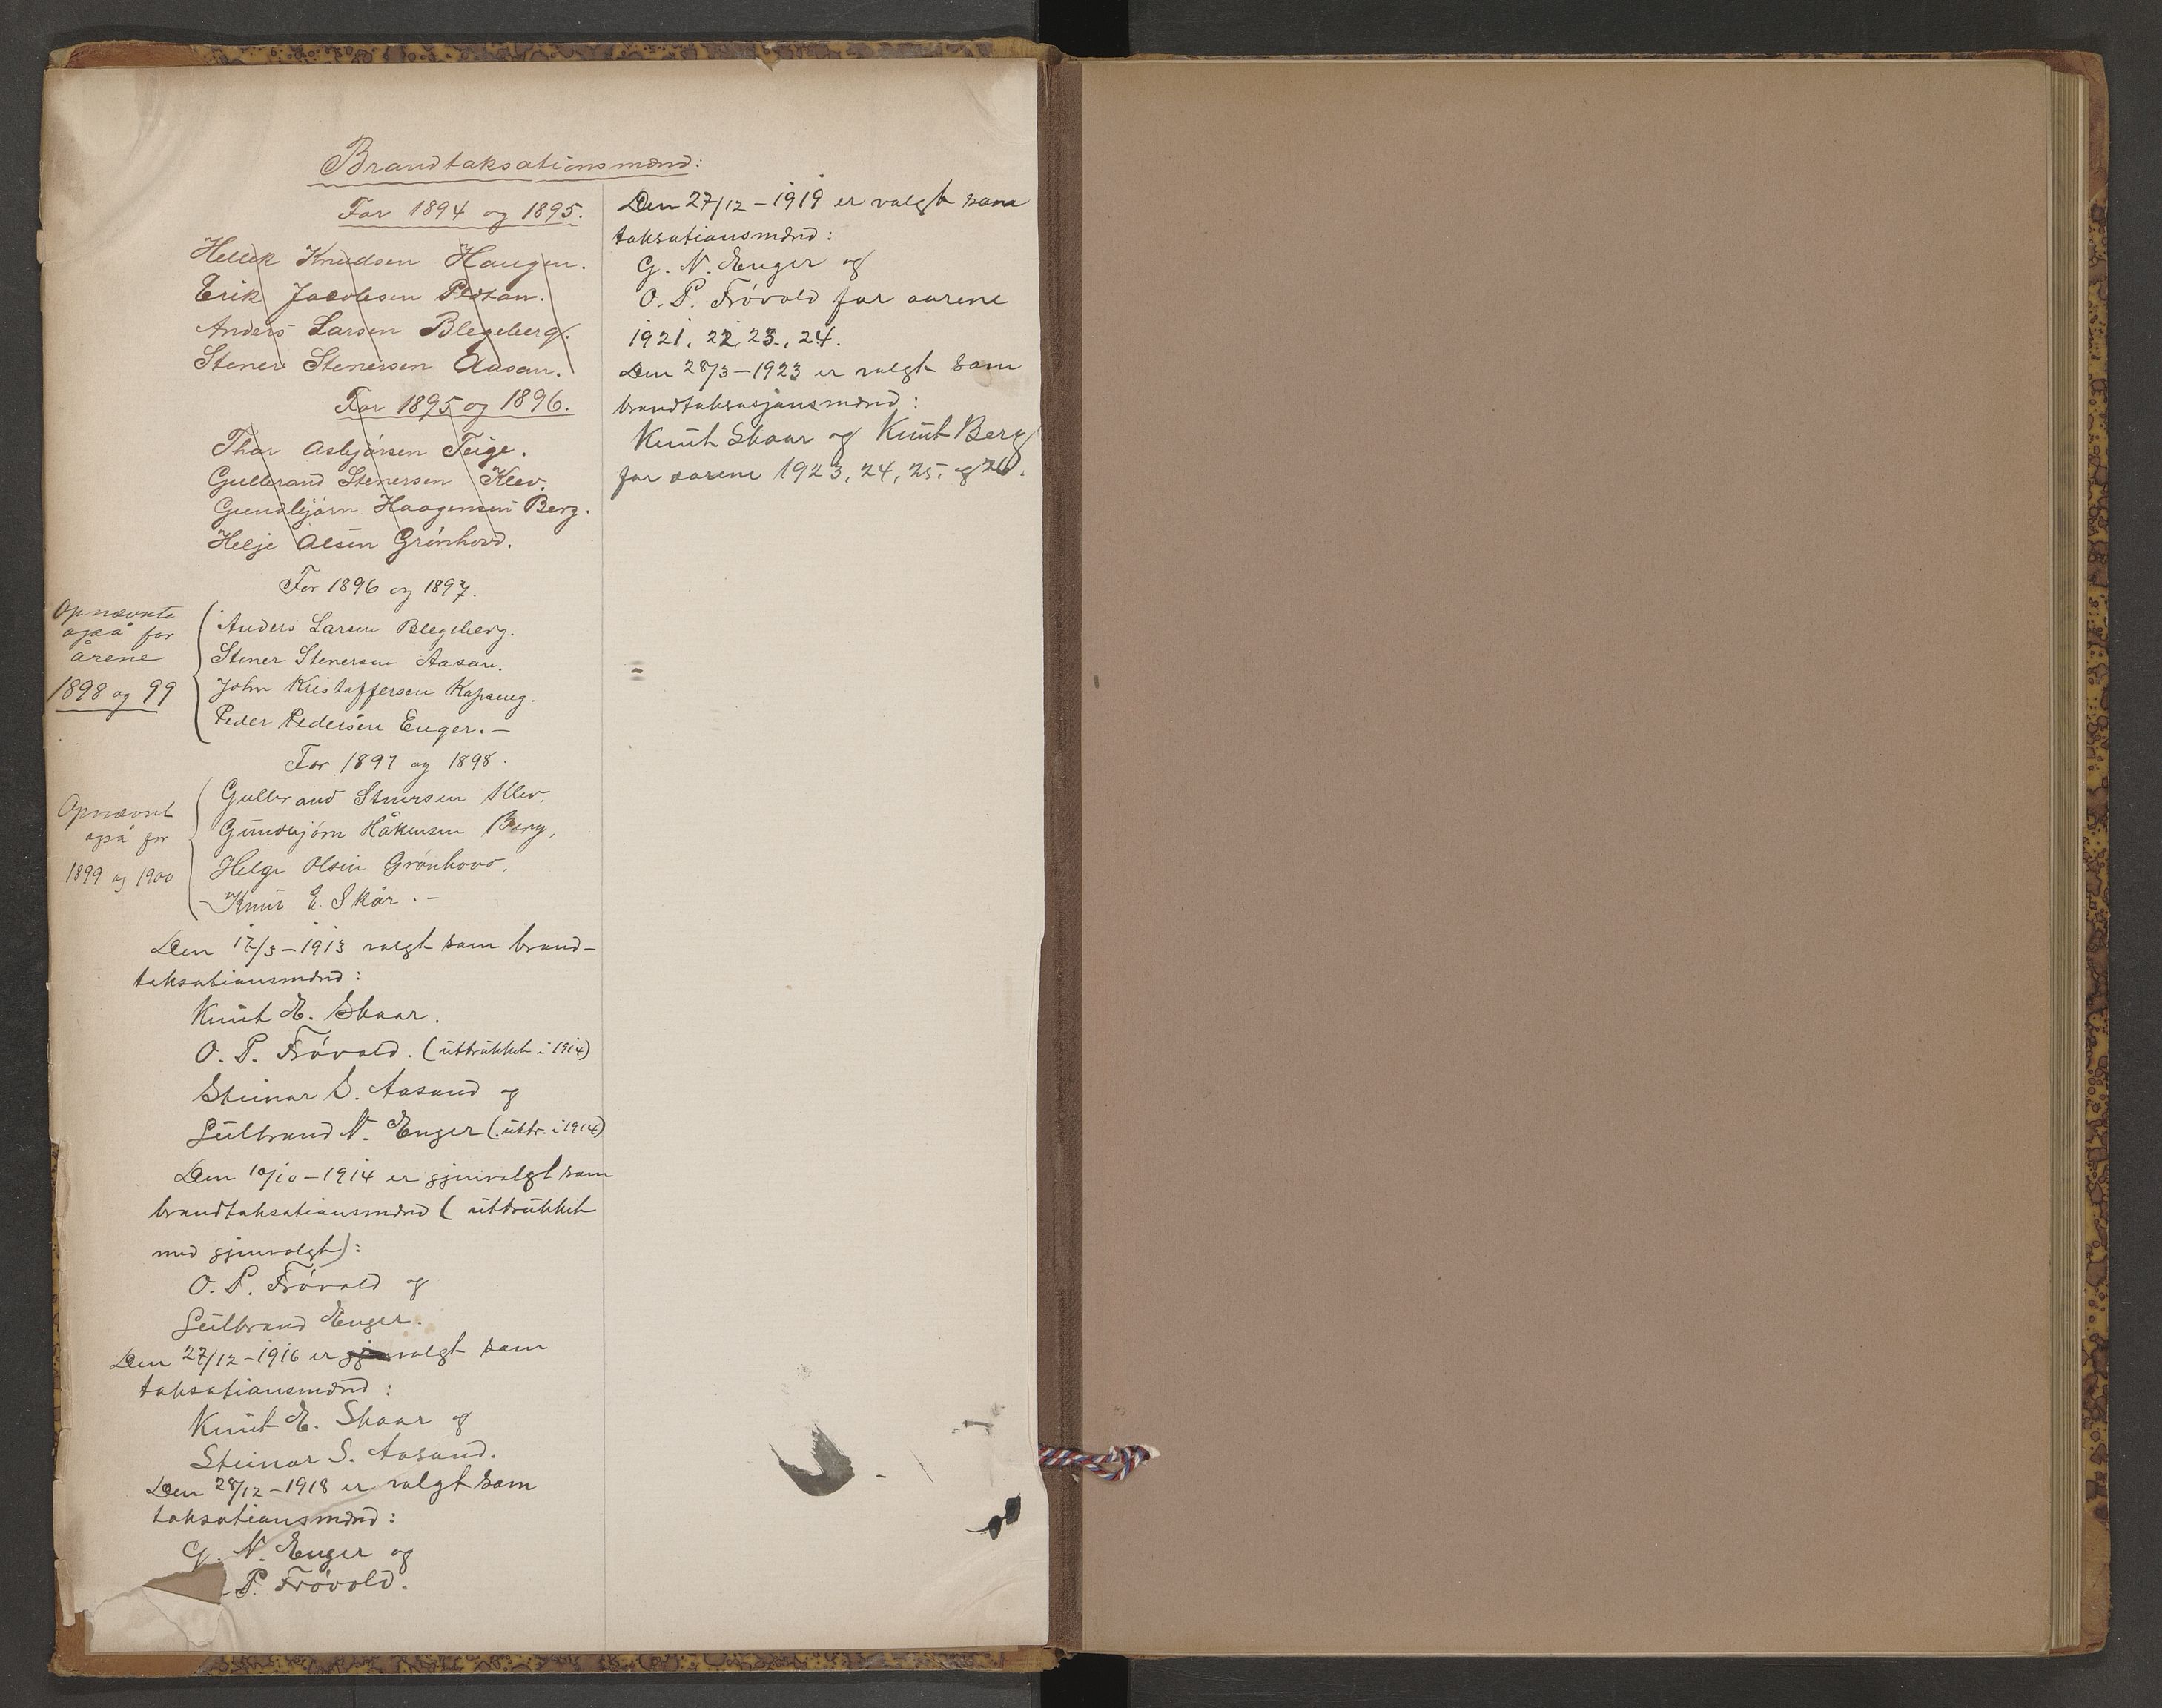 Brandtaksationsmænd:
For 1894 og 1895.
Hellek Knudsen Haugen.
Erik Jacobsen
Anders Larsen Blegeberg.
Stener Stenersen Aasan.
For 1895 og 1896.
Thor Asbjørsen Teige.
Gulbrand Stenersen Klev.
Gundbjørn Haagensen Berg.
Helje Olsen Grønhovd.
For 1896 og 1897.
Opnævnte
også for
årene
1898 og 99
Anders Larsen Blegeberg.
Stener Stenersen Aasan.
John Kristoffersen
Peder Pedersen Enger. –
For 1897 og 1898.
Opnævnt
også for
1899 og 1900
Gulbrand Stenersen Klev.
Gundbjørn Håkensen Berg,
Helge Olsen Grønhovd.
Knut E. Skår. –
Den 17/3 – 1913 valgt som brand-
taksationsmænd:
Knut E. Skaar.
O. P. Frøvold. (uttrukket i 1914)
Steinar S. Aasand og
Gulbrand N. Enger (uttr. i 1914)
Den 10/10 – 1914 er gjenvalgt som
brandtaksationsmænd (uttrukket
med gjenvalgt):
O. P. Frøvold og
Gulbrand Enger.
Den 27/12 – 1916 er valgt som
taksationsmænd:
Knut E. Skaar og
Steinar S. Aasand.
Den 28/12 – 1918 er valgt som
taksationsmænd:
G. N. Enger og
P. Frøvold.
Den 27/12 – 1919 er valgt som
taksationsmænd:
G. N. Enger og
O. P. Frøvold for aarene
1921, 22, 23, 24.
Den 28/3 – 1923 er valgt som
brandtaksasjonsmænd:
Knut Skaar og Knut Berg
for aarene 1923, 24, 25. og 26.